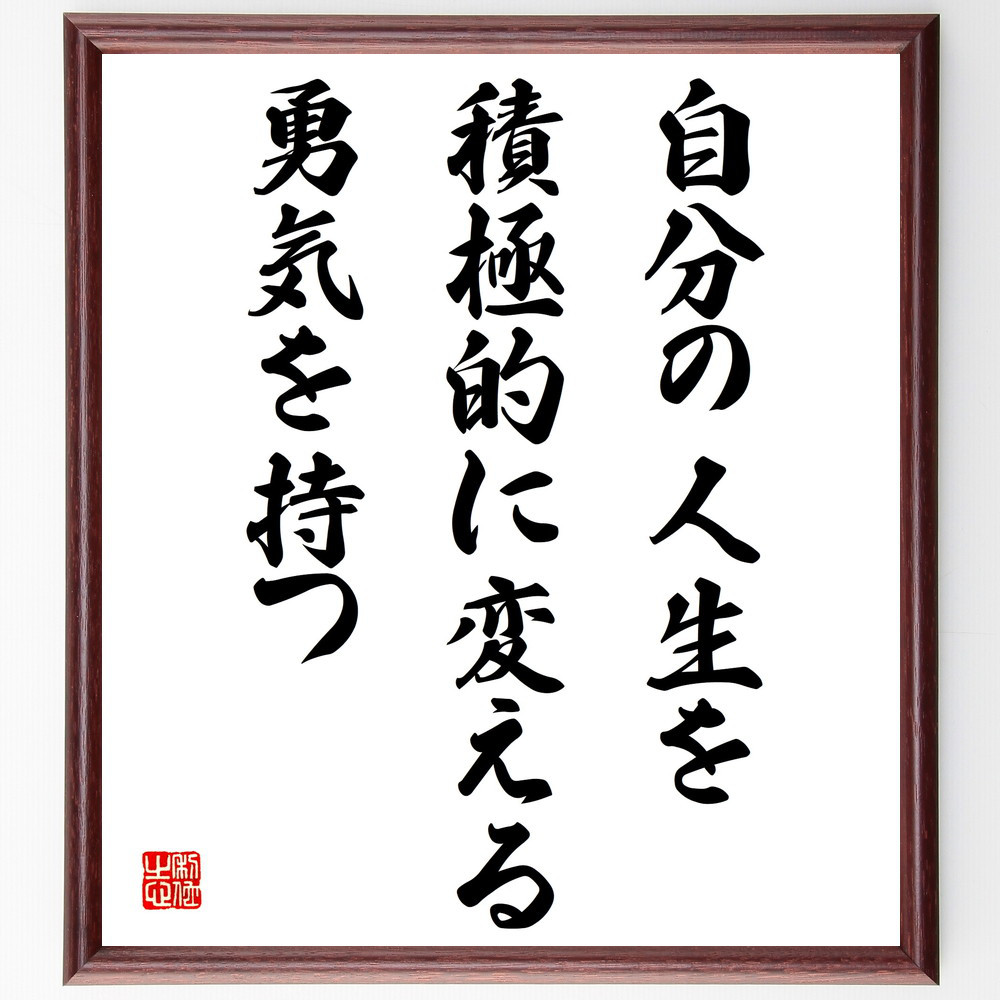 自分の人生を
積極的に変える
勇気を持つ